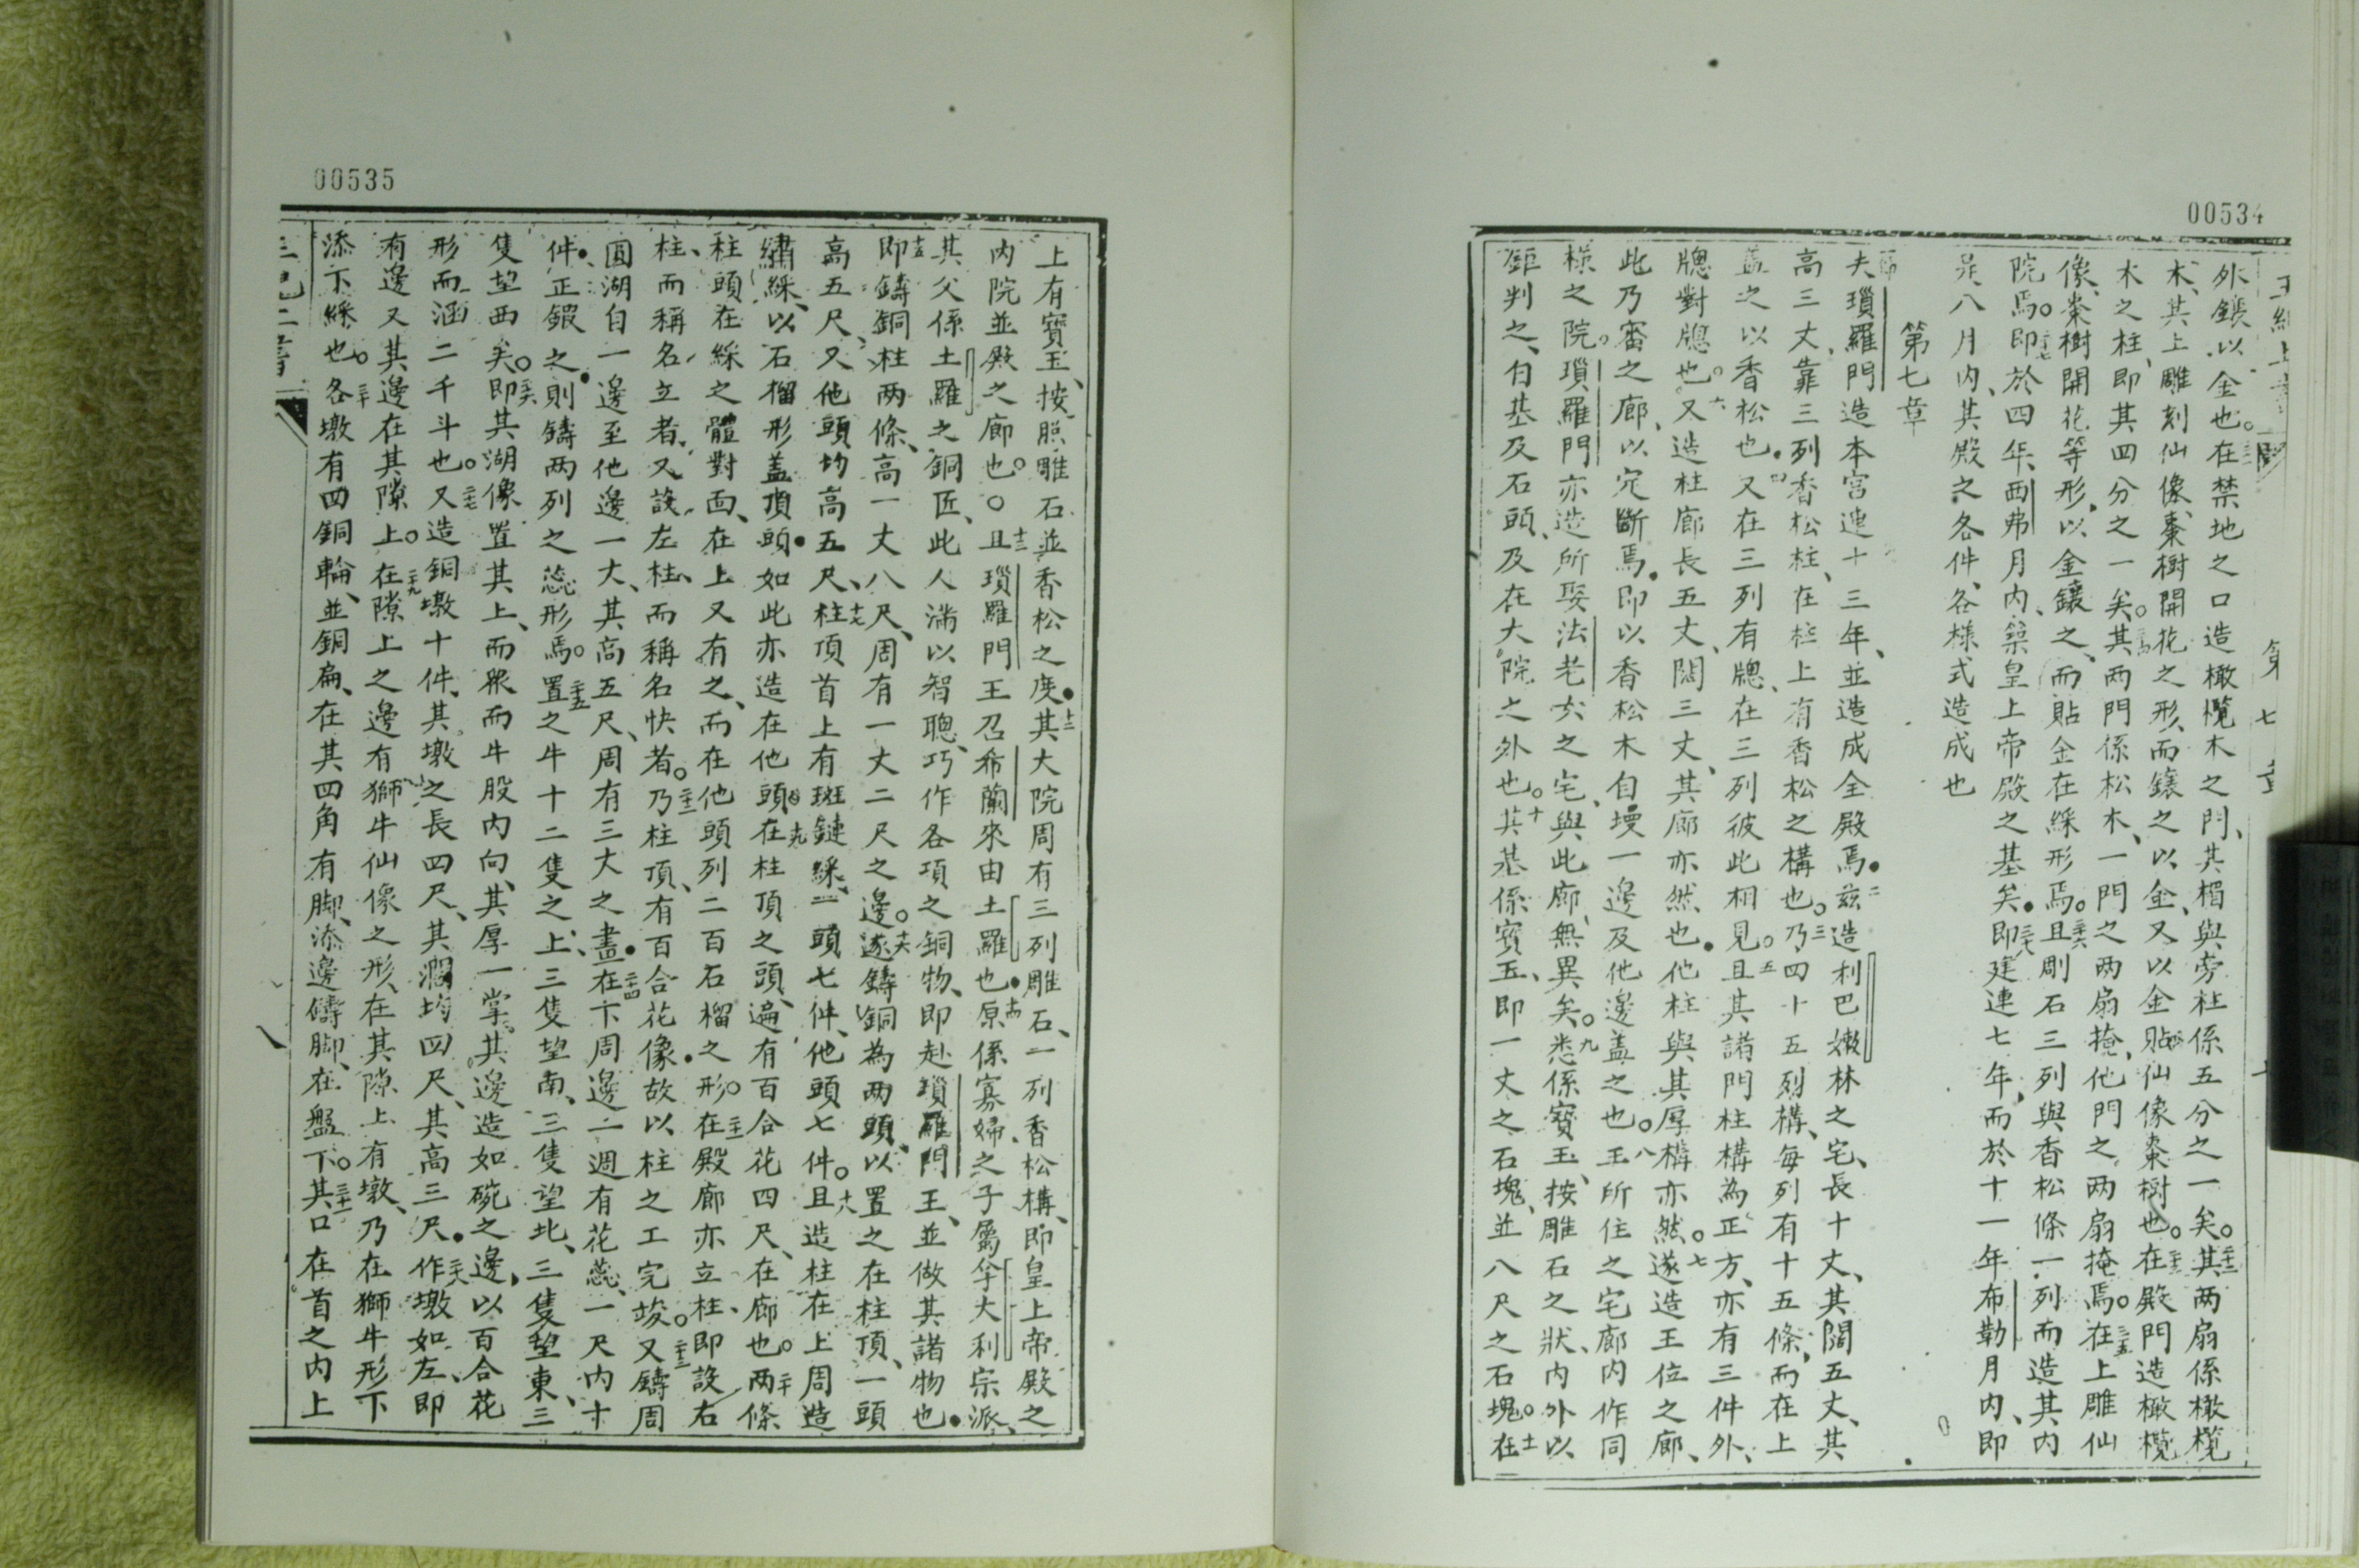 00534
第七章
外鑲以金也。三十二在禁地之口造橄欖木之門、其楣與旁柱係五分之一矣。三十二其兩扇係橄欖
木、其上雕刻仙像、棗樹開花之形、而鑲之以金、又以金貼仙像棗樹也。三十三在殿門造橄欖
木之柱、即其四分之一矣。三十四其兩門係松木、一門之兩扇掩、他門之兩扇掩焉。三十五在上雕仙
像、棗樹開花等形、以金鑲之、而貼金在綵形焉。三十六且剛石三列與香松條一列而造其內
院焉。三十七即於四年、西弗月內、築皇上帝殿之基矣。三十八即建連七年、而於十一年布勒月內、即
是八月內、其殿之各件、各樣式造成也
第七章
夫瑣羅門造本宮連十三年、並造成全殿焉。二茲造利巴嫩林之宅、長十丈、其闊五丈、其
高三丈、靠三列香松柱、在柱上有香松之構也。三乃四十五列構、每列有十五條、而在上
蓋之以香松也。四又在三列有牕、在三列彼此相見。五且其諸門柱構為正方、亦有三件外、
牕對牕也。六又造柱廊長五丈、闊三丈、其廊亦然也。他柱與其厚構亦然。七遂造王位之廊、
此乃審之廊、以定斷焉。即以香松木自墁一邊及他邊蓋之也。八王所住之宅廊內作同
樣之院。瑣羅門亦造所娶法老女之宅、與此廊無異矣。九悉係寶玉、按雕石之狀、內外以
鉅判之、自基及石頭、及在大院之外也。十其基係寶玉、即一丈之石塊、並八尺之石塊。十一在
00535
上有寶玉、按照雕石並香松之度。十二其大院周有三列雕石、一列香松構、即皇上帝殿之
內院並殿之廊也。○十三且瑣羅門王召希蘭來由土羅也。十四原係寡婦之子屬孥大利宗派、
其父係土羅之銅匠、此人滿以智聰、巧作各項之銅物、即赴瑣羅門王、並做其諸物也。
十五即鑄銅柱兩條、高一丈八尺、周有一丈二尺之邊。十六遂鑄銅為兩頭、以置之在柱頂、一頭
高五尺、又他頭均高五尺、十七柱頂首上有斑鏈綵、一頭七件、他頭七件。十八且造柱在上周造
繡綵、以石榴形蓋頂頭、如此亦造在他頭也。十九在柱頂之頭、遍有百合花四尺、在廊也。二十兩條
柱頭在綵之體對面、在上又有之、而在他頭列二百石榴之形。二十一在殿廊亦立柱、即設右
柱、而稱名立者、又設左柱、而稱名快者。二十二乃柱頂、有百合花像、故以柱之工完竣。二十三又鑄周
圓湖自一邊至他邊一大、其高五尺、周有三大之畫。二十四在下周邊一週有花蕊、一尺內十
件、正鍜之、則鑄兩列之蕊形焉。二十五置之牛十二隻之上、三隻望南、三隻望北、三隻望東、三
隻望西矣。二十六即其湖像置其上、而眾而牛股內向、其厚一掌、其邊造如碗之邊、以百合花
形而涵二千斗也。二十七又造銅墩十件、其墩之長四尺、其濶均四尺、其高三尺。二十八作墩如左、即
有邊又其邊在其隙上。二十九在隙上之邊有獅牛仙像之形、在其隙上有墩、乃在獅牛形下
添下綵也。三十各墩有四銅輪、並銅扁、在其四角有脚、添邊鑄脚、在盤下。三十一其口在首之內上